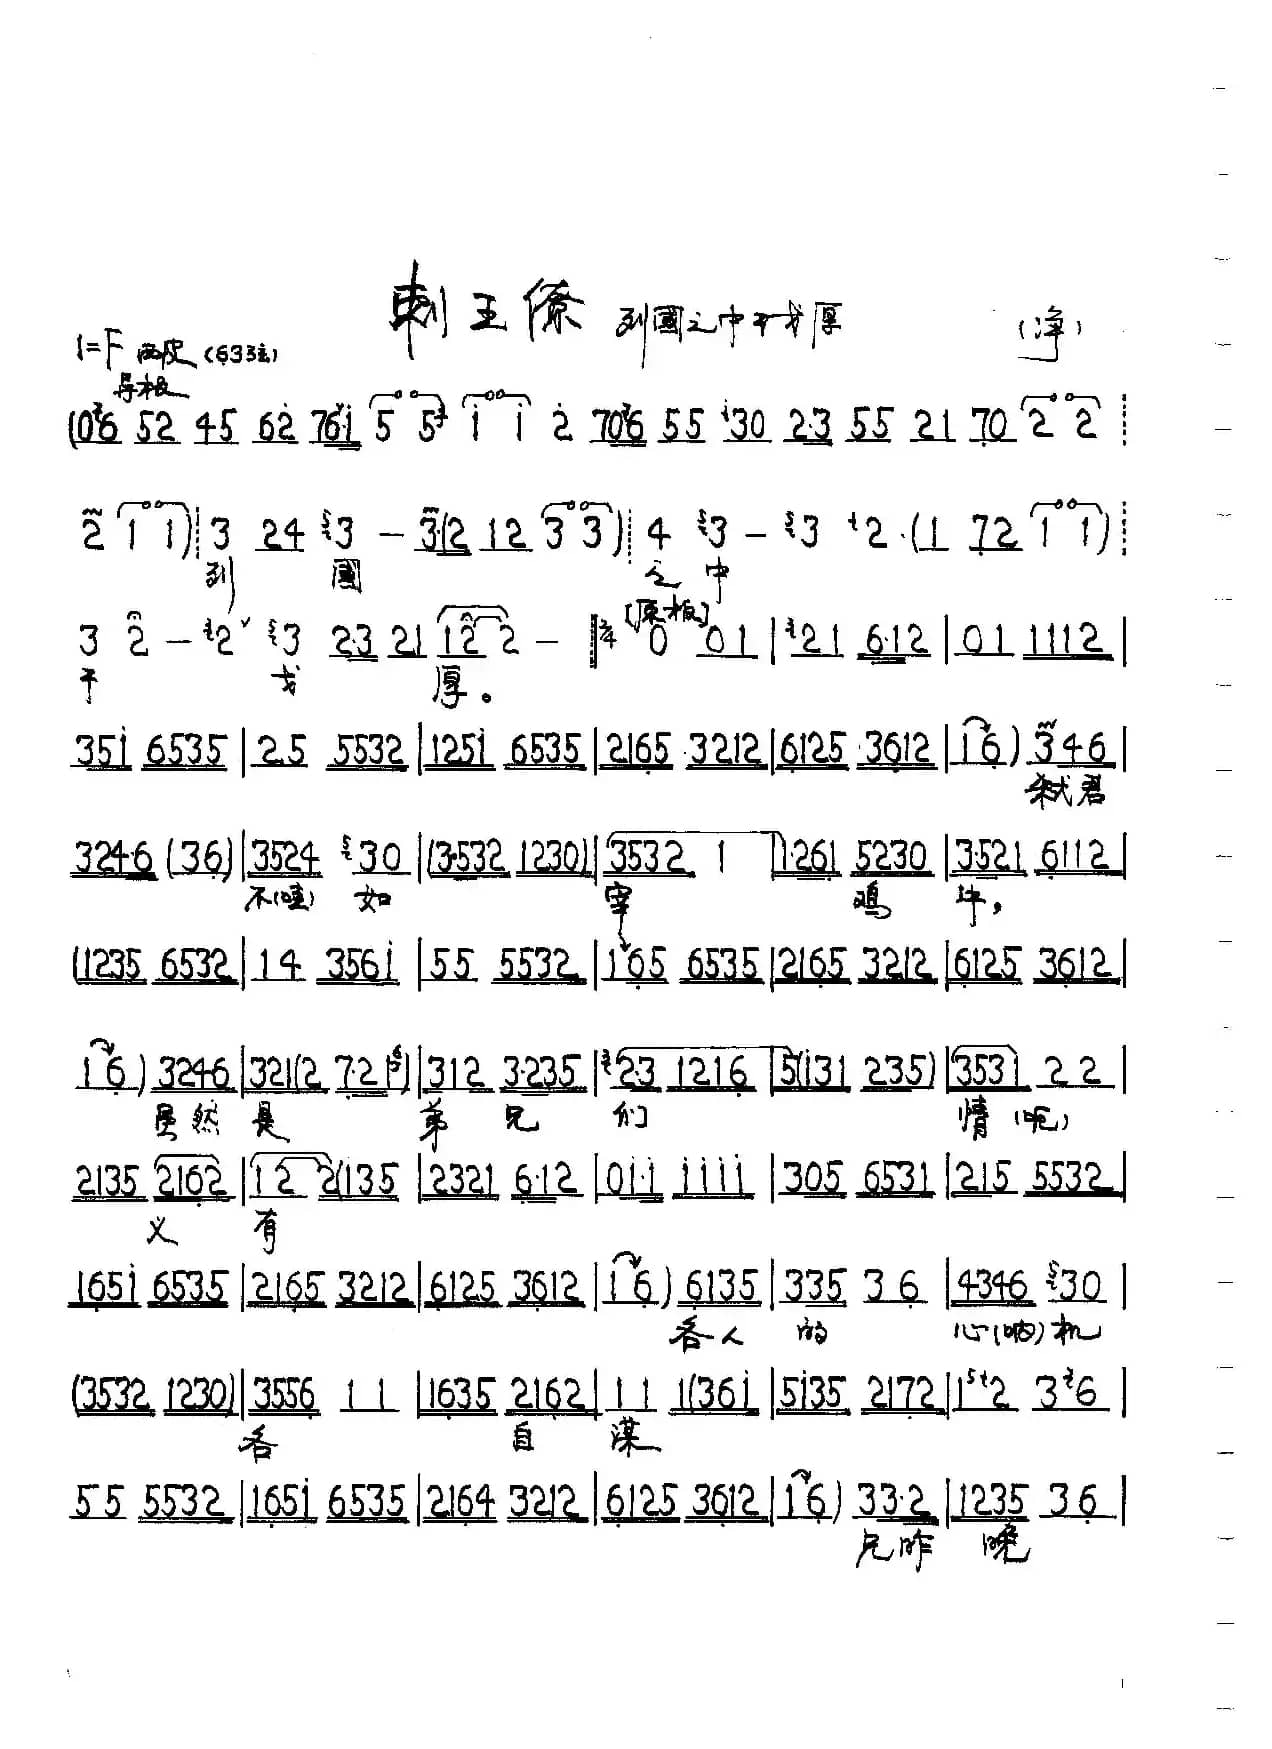 刺王僚 列國之中干戈厚 (净)
1=F 西皮 (63弦)
导板
(06 52 45 62 76·1 5 5 1 1 2 706 55 30 2·3 55 21 70 2 2
2 1 1) 3 24 3 - 3·(2 12 3 3) 4 3 - 3 2·(1 72 1 1)
列 國 之 中
[原板]
3 2 - 2 3 2·3 21 12 2 - 2/4 0 01 | 21 6·12 | 01 1112 |
干 戈 厚。
351 6535 | 2.5 5532 | 1251 6535 | 2165 3212 | 6125 3612 | 16) 346 |
弑君
324·6 (36) | 3524 30 | (3·532 1230) | 3532 1 | 1·261 5230 | 3·521 6112 |
不(哇) 如 宰 鸡 牛，
(1235 6532 | 14 3561 | 55 5532 | 165 6535 | 2165 3212 | 6125 3612 |
16) 3246 | 321(2 7·21) | 312 3·235 | 2·3 1216 | 5(131 235) | 3531 22 |
虽然 是 弟 兄 们 情(呃)
2135 2162 | 12 2(135 | 2321 6·12 | 01·1 1111 | 305 6531 | 215 5532 |
义 有
1651 6535 | 2165 3212 | 6125 3612 | 16) 6135 | 335 36 | 4346 30 |
各人 的 心(呐)机
(3532 1230) | 3556 11 | 1635 2162 | 11 1(361 | 5135 2172 | 12 36 |
各 自 谋
55 5532 | 1651 6535 | 2164 3212 | 6125 3612 | 16) 33·2 | 1235 36 |
兄昨 晚